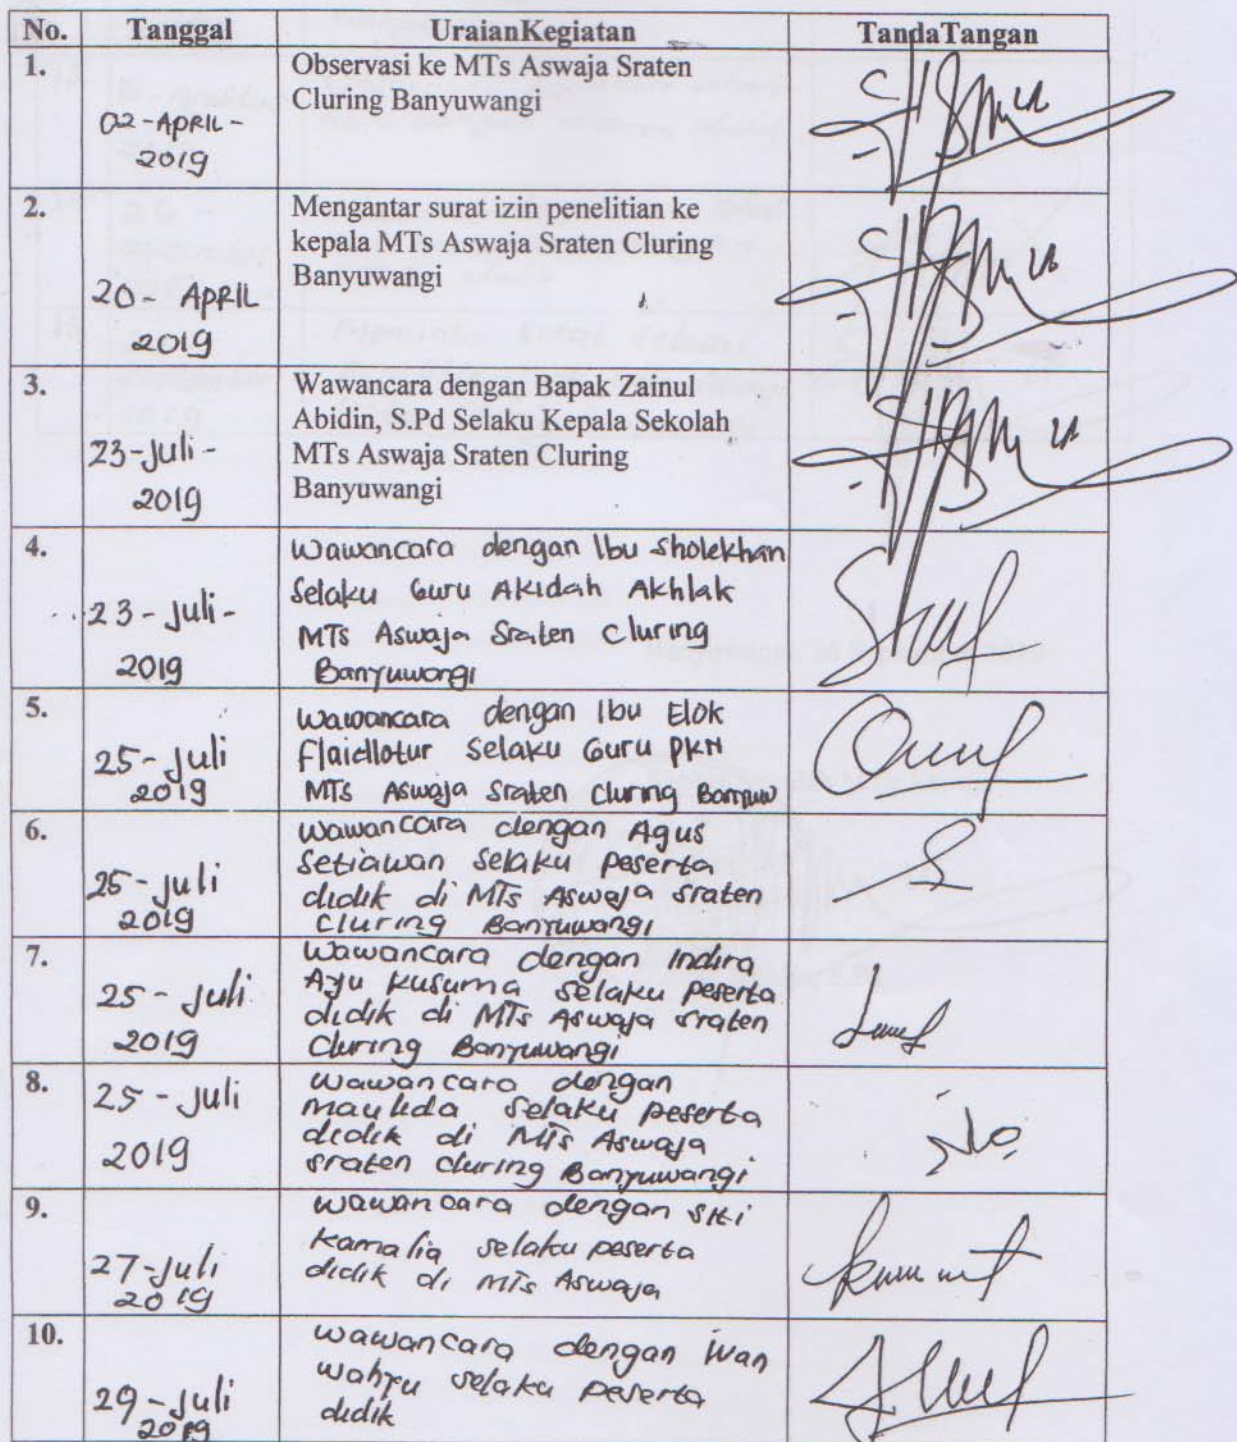 No. Tanggal UraianKegiatan TandaTangan
1. Observasi ke MTs Aswaja Sraten
Cluring Banyuwangi
02-APRIL-
2019
2. Mengantar surat izin penelitian ke
kepala MTs Aswaja Sraten Cluring
Banyuwangi
20- APRIL
2019
3. Wawancara dengan Bapak Zainul
Abidin, S.Pd Selaku Kepala Sekolah
MTs Aswaja Sraten Cluring
Banyuwangi
23-Juli-
2019
4. Wawancara dengan Ibu Sholekhan
Selaku Guru Akidah Akhlak
MTs Aswaja Sraten Cluring
Banyuwangi
23-Juli-
2019
5. Wawancara dengan Ibu Elok
selaku Guru PKN
MTs Aswaja Sraten Cluring
25-Juli
2019
6. Wawancara dengan Agus
Setiawan Selaku peserta
didik di MTs Aswaja Sraten
Cluring Banyuwangi
25-Juli
2019
7. Wawancara dengan Indira
Ayu Kusuma selaku peserta
didik di MTs Aswaja Sraten
Cluring Banyuwangi
25-Juli
2019
8. Wawancara dengan
Maulida selaku peserta
didik di MTs Aswaja
Sraten Cluring Banyuwangi
25-Juli
2019
9. Wawancara dengan Siti
Kamalia selaku peserta
didik di MTs Aswaja
27-Juli
2019
10. Wawancara dengan Ivan
Wahyu selaku peserta
didik
29-Juli
2019